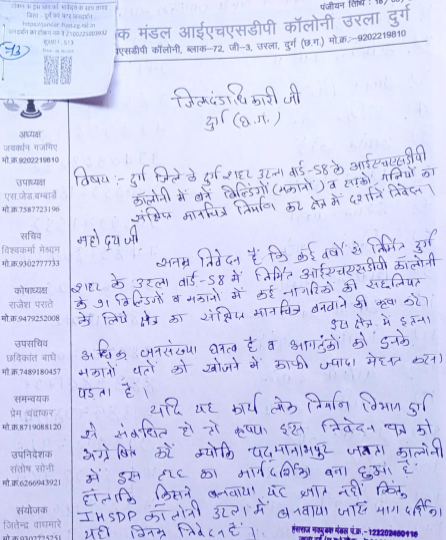 पंजीयन तिथि : 18/
क मंडल आईएचएसडीपी कॉलोनी उरला दुर्ग
एसडीपी कॉलोनी, ब्लाक-72, जी-3, उरला, दुर्ग (छ.ग.) मो.क्र.-9202219810
513
अध्यक्ष
मो.क्र.9202219810
उपाध्यक्ष
एस.जेड.बम्बार्डे
मो.क्र.7587723196
सचिव
विश्वकर्मा मेश्राम
मो.क्र.9302777733
कोषाध्यक्ष
राजेश पराते
मो.क्र.9479252008
उपसचिव
छदिकांत बाघे
मो.क्र.7489180457
समन्वयक
प्रेम चंद्राकर
मो.क्र.8719088120
उपनिदेशक
संतोष सोनी
मो.क्र.6266943921
संयोजक
जितेन्द्र वाघमारे
जिलादंडाधिकारी जी
दुर्ग (छ.ग.)
विषय :- दुर्ग जिले के दुर्ग शहर उरला वार्ड-58 के आईएचएसडीपी
कॉलोनी में बने बिल्डिंगों (मकानों) व सड़कों, गलियों का
संक्षिप्त मानचित्र निर्माण कर क्षेत्र में दर्शाने निवेदन।
महोदय जी,
सनम्र निवेदन है कि कई वर्षों से निर्मित दुर्ग
शहर के उरला वार्ड-58 में निर्मित आईएचएसडीपी कॉलोनी
के 91 बिल्डिंगों व मकानों में कई नागरिकों की सहूलियत
के लिये क्षेत्र का संक्षिप्त मानचित्र बनवाने की कृपा करें।
इस क्षेत्र में इतना
अधिक जनसंख्या घनत्व है व आगंतुकों को उनके
मकानों पतों को खोजने में काफी ज्यादा मेहनत करना
पड़ता है।
यदि यह कार्य लोक निर्माण विभाग दुर्ग
से संबंधित हो तो कृपया इस निवेदन पत्र को
अग्रेषित करें क्योंकि पदमनाभपुर जनता कालोनी
में इस तरह का मार्गदर्शिका बना हुआ है
हालांकि किसने बनवाया यह ज्ञात नहीं किन्तु
IHSDP कॉलोनी उरला में बनवाया जाये मार्गदर्शिका
यही विनम्र निवेदन है।
हसराज नवयुवक मंडल पं.क्र.-122202460116